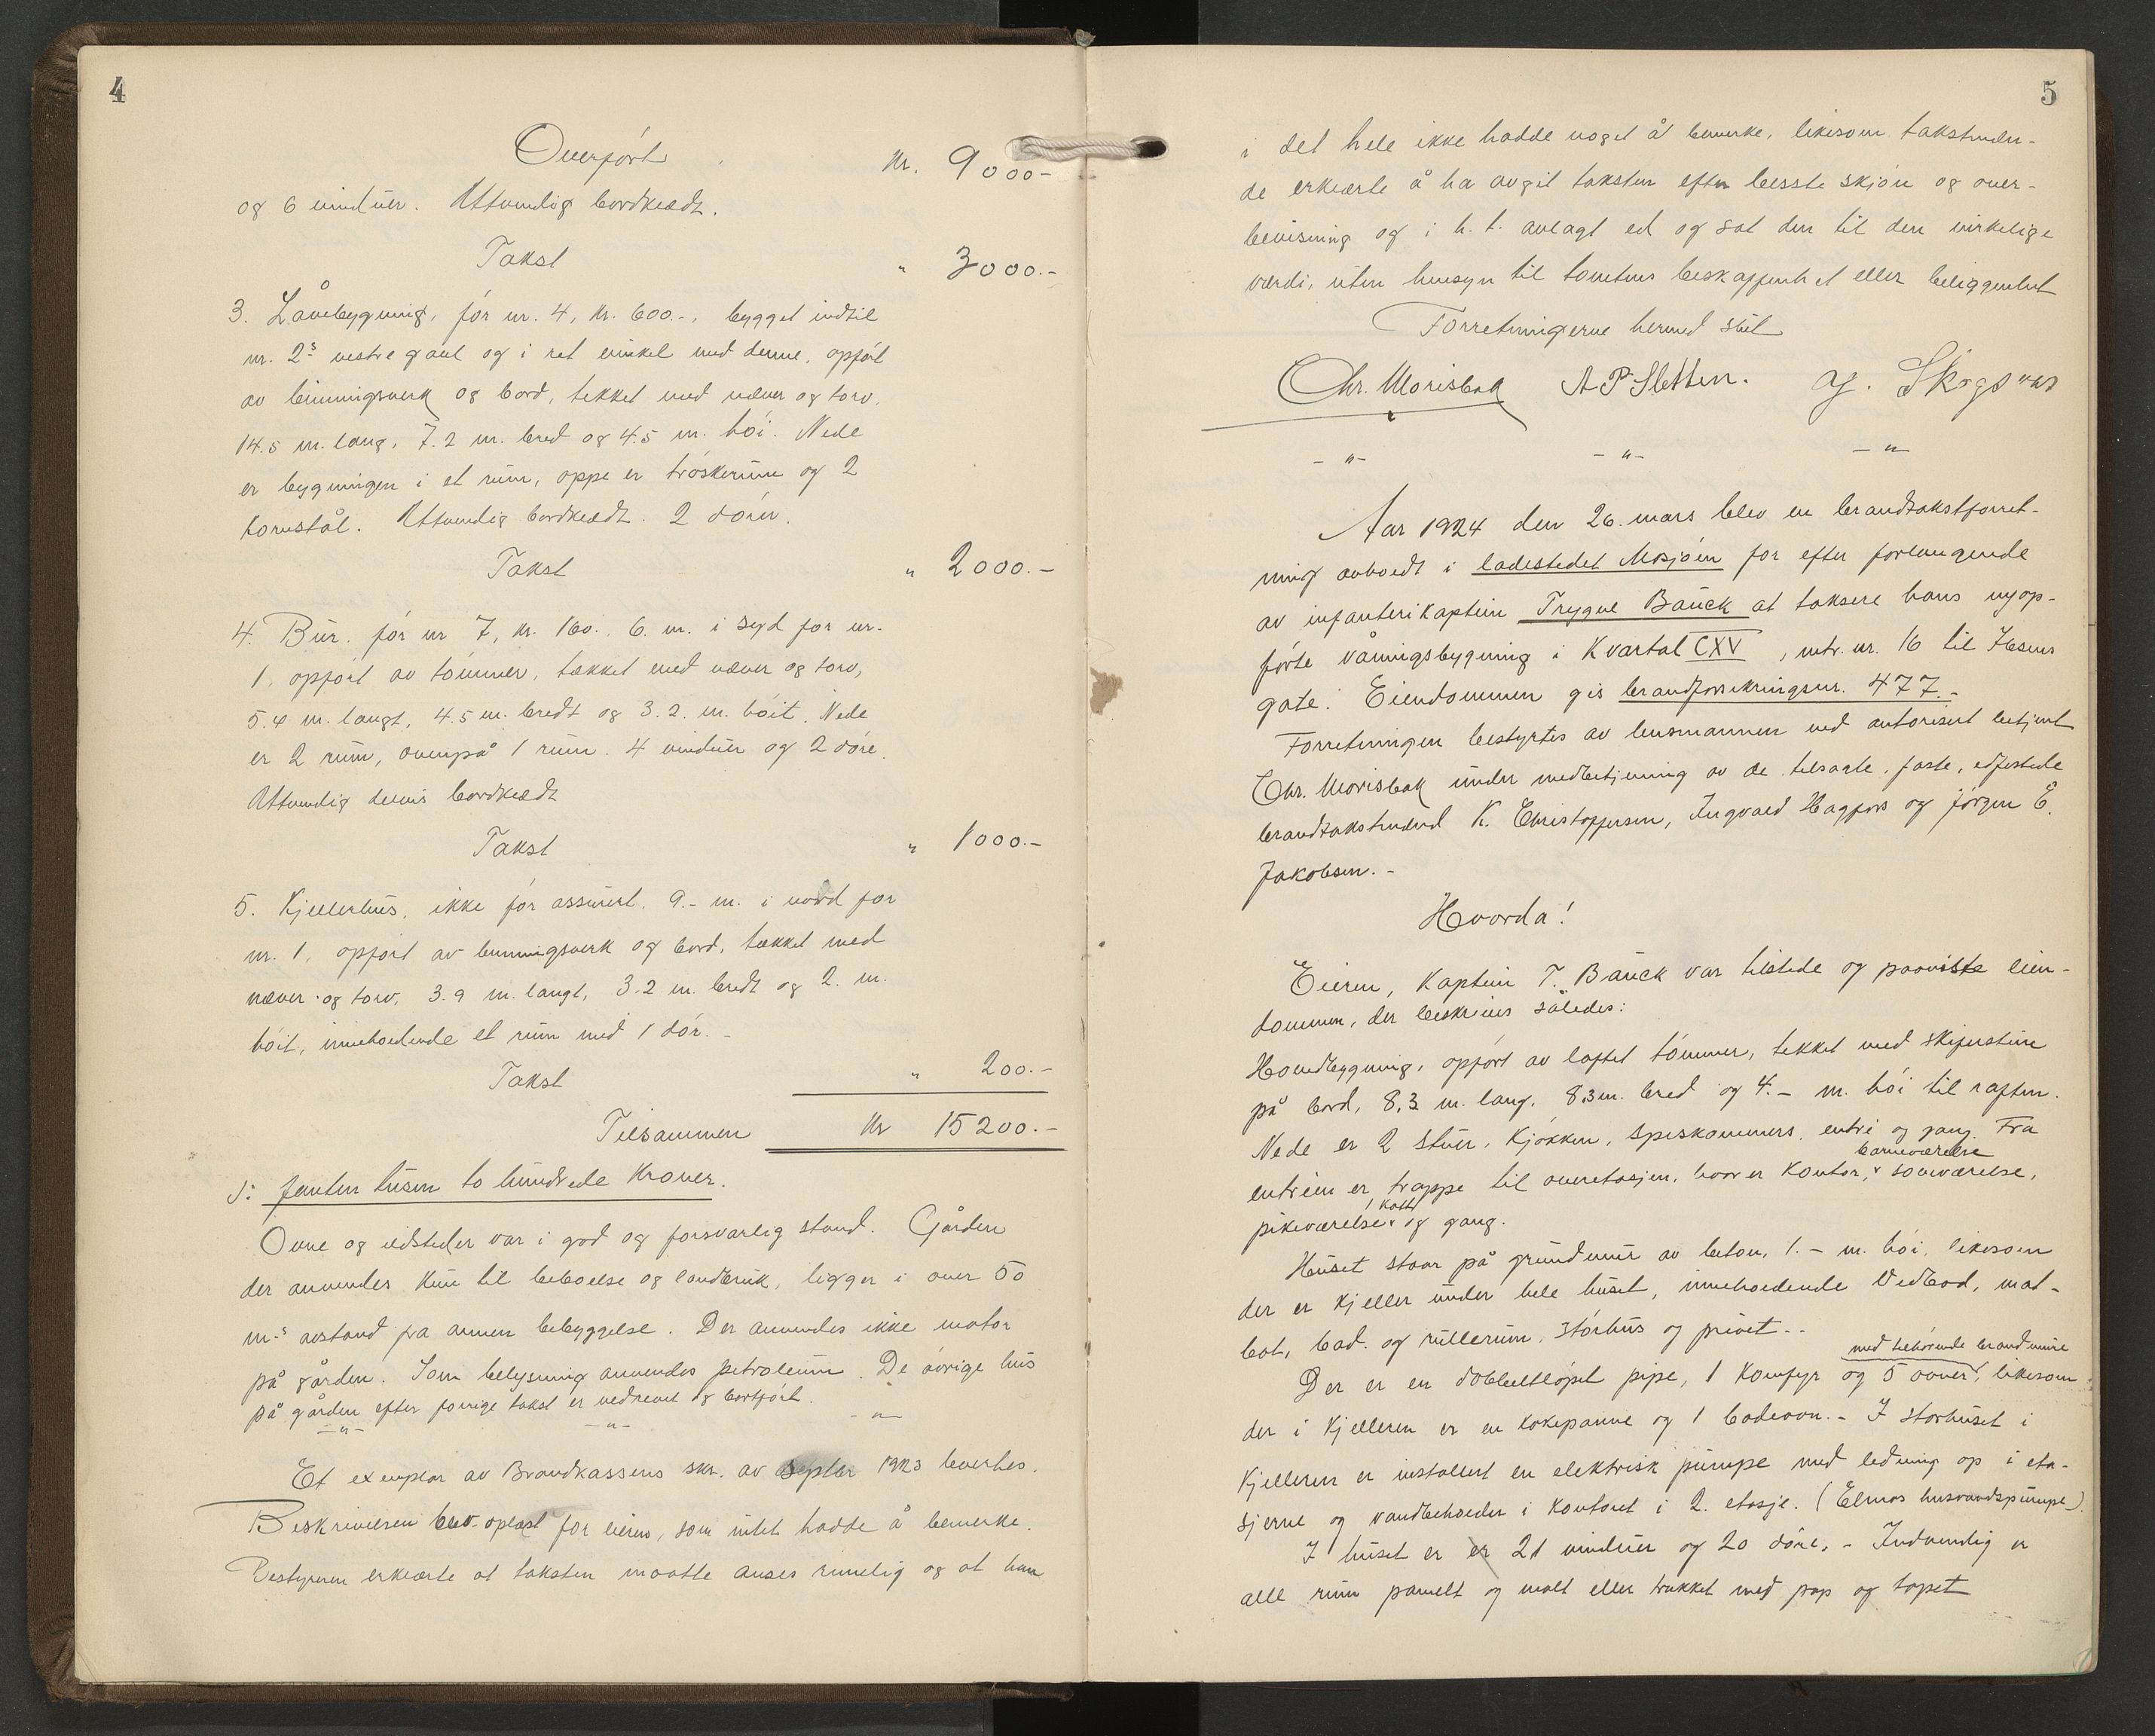 4
Overført kr. 9000-
og 6 vinduer. Utvendig bordklædt.
Takst " 3000.-
3. Låvebygning, før nr. 4, kr. 600.-, bygget indtil
nr. 2s vestre gavl og i ret vinkel med denne, opført
av binningsverk og bord, tekket med næver og torv.
14.5 m. lang, 7.2 m. bred og 4.5 m. høi. Nede
er bygningen i et rum, oppe er trøskerum og 2
kornstål. Utvendig bordklædt. 2 dører.
Takst " 2000.-
4. Bur. før nr 7, kr. 160., 6. m. i syd for nr.
1. opført av tømmer, tækket med næver og torv,
5.4 m. langt, 4.5 m. bredt og 3.2. m. høit. Nede
er 2 rum, ovenpå 1 rum. 4 vinduer og 2 døre.
Utvendig delvis bordklædt
Takst " 1000.-
5. Kjellerhus, ikke før assurert. 9.- m. i nord for
nr. 1, opført av binningsverk og bord, tækket med
næver og torv, 3.9 m. langt, 3.2 m. bredt og 2. m.
høit, inneholdende et rum med 1 dør.-
Takst " 200.-
Tilsammen Kr 15200.-
S: femten tusen to hundrede kroner.
Ovne og ildsteder var i god og forsvarlig stand. Gården
der anvendes kun til beboelse og landbruk, ligger i over 50
m-s avstand fra annen bebyggelse. Der anvendes ikke motor
på gården. Som belysning anvendes petroleum. De øvrige hus
på gården efter forrige takst er nedrevet og bortført.
-"- -"- -"-
Et exemplar av Brandkassens skr. av septbr 1923 levertes.
Beskrivelsen blev oplæst for eieren, som intet hadde å bemerke.
Bestyreren erklærte at taksten maatte anses rimelig og at han
5
i det hele ikke hadde noget å bemerke, likesom takstmen-
de erklærte å ha avgit taksten efter beste skjøn og over-
bevisning og i h. t. avlagt ed og sat den til den virkelige
værdi, uten hensyn til tomtens beskaffenhet eller beliggenhet
Forretningerne hermed slut
Chr. Morisbak A P Sletten.
-"- -"- -"-
Aar 1924 den 26. mars blev en brandtakstforret-
ning avholdt i ladestedet Mosjøen for efter forlangende
av infanterikaptein Trygve Bauck at taksere hans nyop-
førte våningsbygning i Kvartal CXV, mtr. nr. 16 til
gate. Eiendommen gis brandforsikringsnr. 477.-
Forretningen bestyrtes av lensmannen ved autorisert betjent
Chr. Morisbak under medbetjening av de tilsatte, faste, edfestede
brandtakstmænd K. Christoffersen, Ingvald Hagfors og Jørgen E.
Jakobsen.-
Hvorda!
Eieren, Kaptein T. Bauck var tilstede og paaviste eien-
dommen, der beskrives således:
Hovedbygning, opført av laftet tømmer, tekket med skifersteine
på bord, 8,3 m. lang, 8,3 m. bred og 4.- m. høi til raften.
Nede er 2 stuer, kjøkken, spiskammers, entre og gang. Fra
barneværelse
entreen er trappe til overetasjen, hvor er kontor, v soveværelse,
1 kott
pikeværelse v og gang.
Huset staar på grundmur av beton, 1.- m. høi, likesom
der er kjeller under hele huset, inneholdende vedbod, mat-
bod, bad. og rullerum, storhus og privet..
med behørende brandmure
Der er en dobbeltløpet pipe, 1 komfyr og 5 ovner, likesom
der i kjelleren er en kokepanne og 1 badeovn.- I storhuset i
kjelleren er installert en elektrisk pumpe med ledning op i eta-
sjerne og vandbeholder i kontoret i 2. etasje. (Elmos husvandspumpe).
I huset er er 21 vinduer og 20 døre.- Indvendig er
alle rum panelt og malt eller trukket med pap og tapet